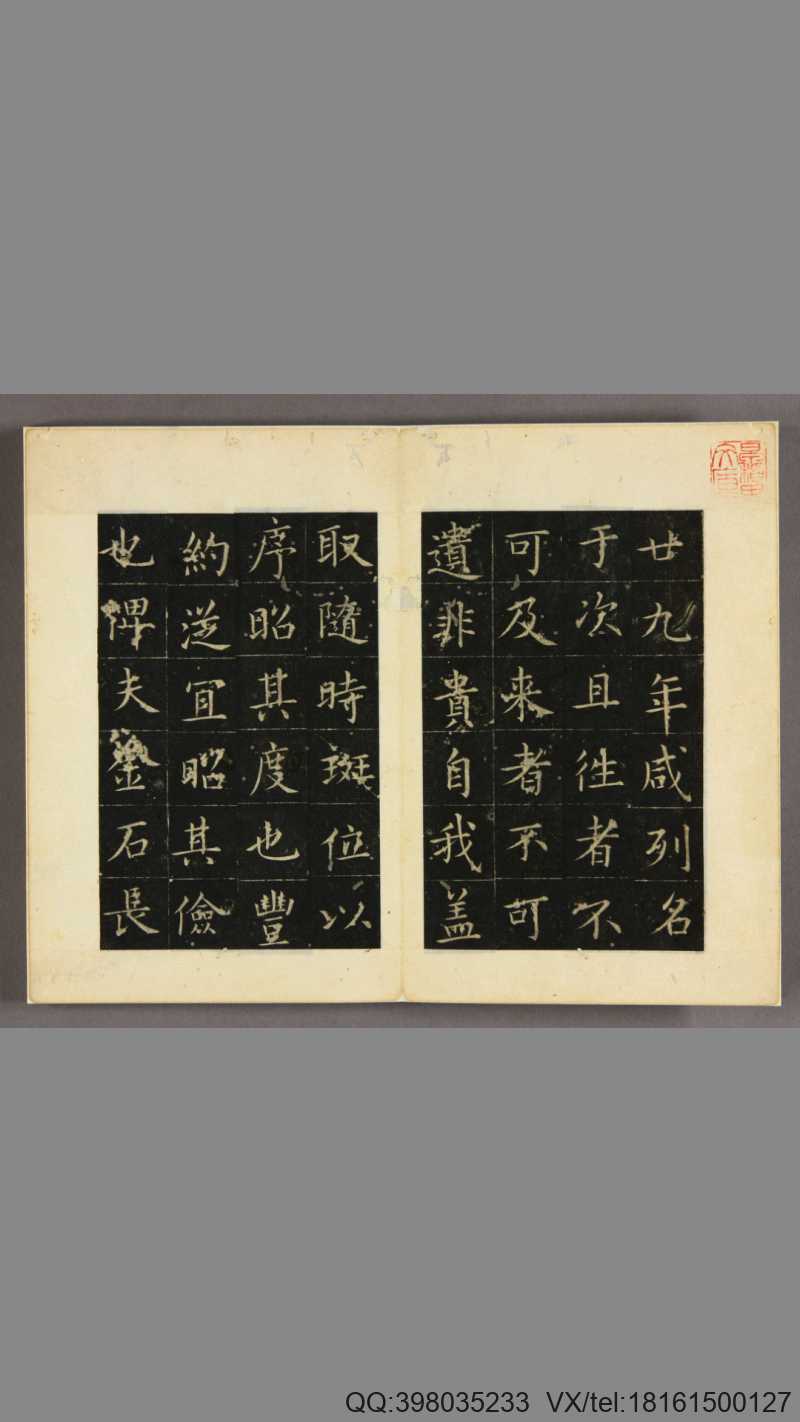 廿九年咸列名
于次且往者不
可及来者不可
遺非貴自我盖
取隨時斑位以
序昭其度也豐
約逆宜昭其儉
也俾夫金石長
QQ:398035233 VX/tel:18161500127